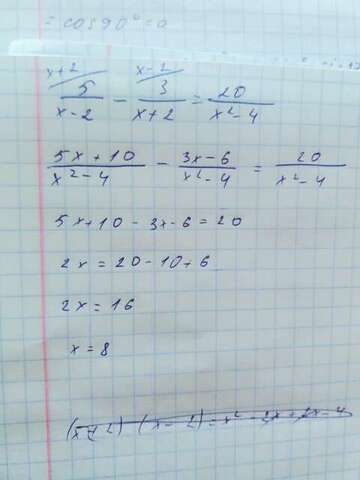 = cos 90° = 0
x+2 x-2
5/(x-2) - 3/(x+2) = 20/(x²-4)
(5x+10)/(x²-4) - (3x-6)/(x²-4) = 20/(x²-4)
5x+10-3x-6=20
2x=20-10+6
2x=16
x=8
(x+2)(x-2)=x²-2x+2x-4